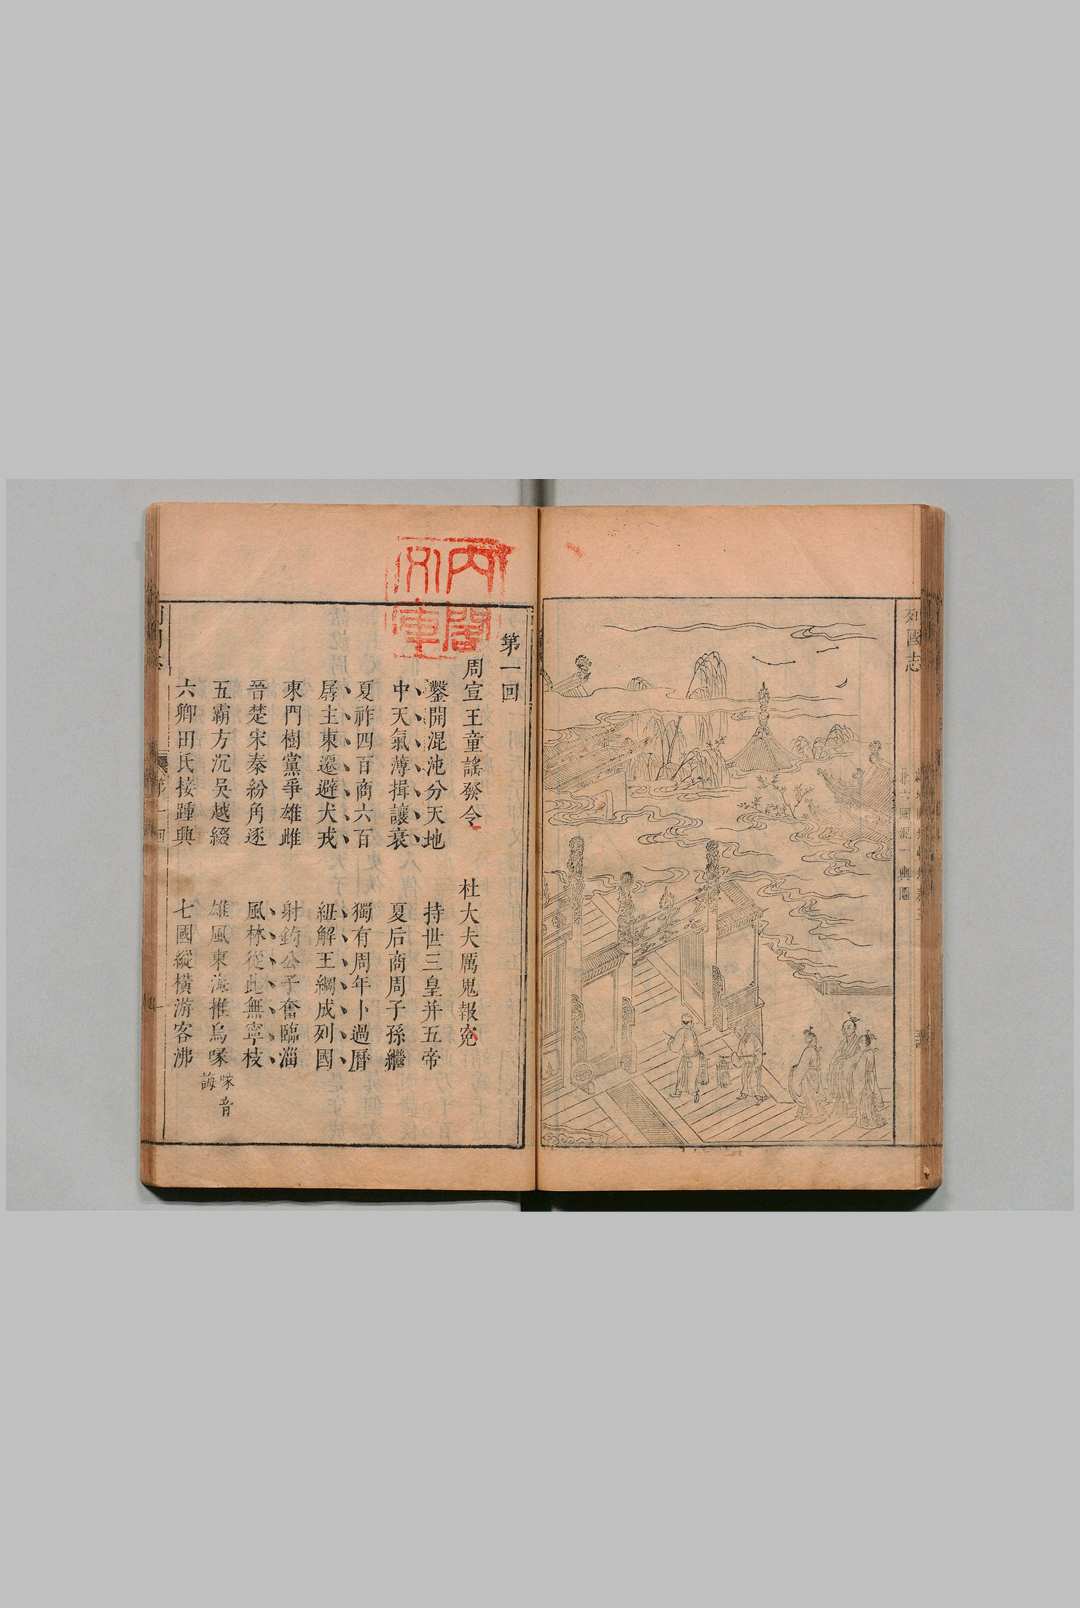 列國志
第一回
周宣王童謠發令　杜大夫厲鬼報寃
鑿開混沌分天地　持世三皇并五帝
中天氣薄揖讓衰　夏后商周子孫繼
夏祚四百商六百　獨有周年卜過曆
孱主東遷避犬戎　紐解王綱成列國
東門樹黨爭雄雌　射鉤公子奮臨淄
晉楚宋秦紛角逐　風林從此無寧枝
五霸方沉吳越綴　雄風東海推烏喙
喙音
誨
六卿田氏接踵興　七國縱橫游客沸
內閣
文庫